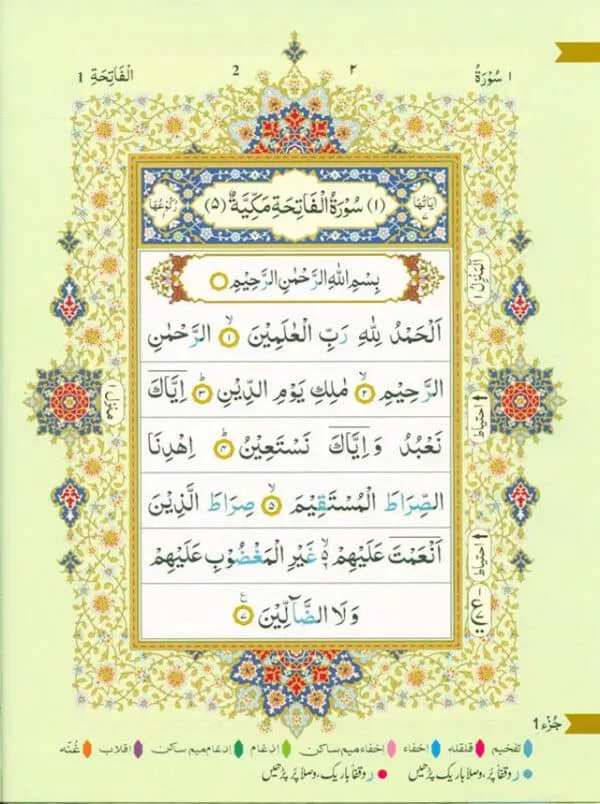 ١ سُوْرَةُ ٢ 2 اَلْفَاتِحَةِ 1
اٰيَاتُهَا ٧ (١) سُوْرَةُ الْفَاتِحَةِ مَكِّيَّةٌ (٥) رُكُوْعُهَا
بِسْمِ اللّٰهِ الرَّحْمٰنِ الرَّحِيْمِ
اَلْحَمْدُ لِلّٰهِ رَبِّ الْعٰلَمِيْنَ ۙ﴿١﴾ الرَّحْمٰنِ
الرَّحِيْمِ ۙ﴿٢﴾ مٰلِكِ يَوْمِ الدِّيْنِ ؕ﴿٣﴾ اِيَّاكَ
نَعْبُدُ وَ اِيَّاكَ نَسْتَعِيْنُ ؕ﴿٤﴾ اِهْدِنَا
الصِّرَاطَ الْمُسْتَقِيْمَ ۙ﴿٥﴾ صِرَاطَ الَّذِيْنَ
اَنْعَمْتَ عَلَيْهِمْ ۙ۬ غَيْرِ الْمَغْضُوْبِ عَلَيْهِمْ
وَلَا الضَّآلِّيْنَ ﴿٧﴾ ع
اَلْمَنْزِلُ ١
احتیاط
احتیاط
منزل ١
جُزْء 1
تفخیم قلقله إخفاء إخفاء میم ساکن إدغام إدغام میم ساکن إقلاب غُنّه
ر وقفاً پُر، وصلاً باریک پڑھیں ر وقفاً باریک، وصلاً پُر پڑھیں